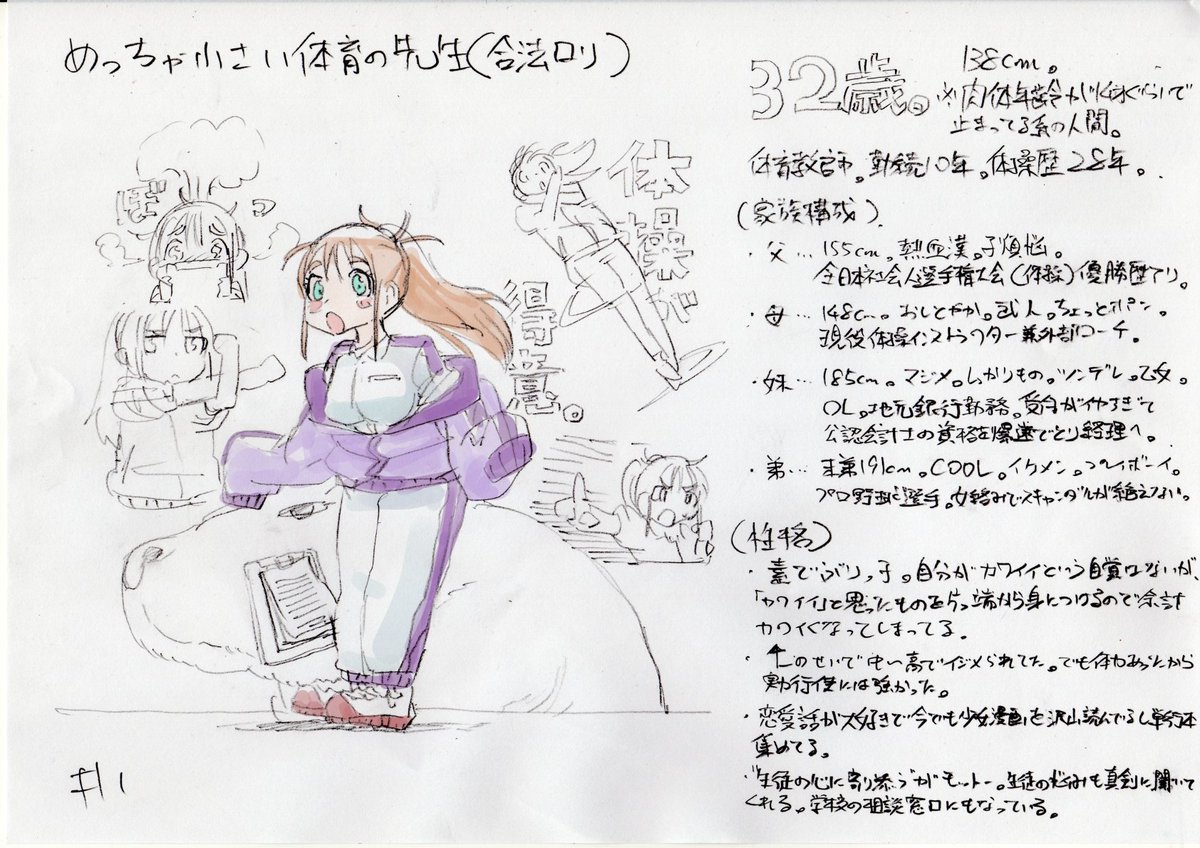 めっちゃ小さい体育の先生(合法ロリ)
32歳。
138cm。
※肉体年齢が 歳ぐらいで
止まってる系の人間。
体育教師。勤続10年。体操歴28年。
(家族構成)
・父…155cm。熱血漢。子煩悩。
全日本社会人選手権大会(体操)優勝歴アリ。
・母…148cm。おしとやか。美人。ちょっとポン。
現役体操インストラクター兼外部コーチ。
・妹…185cm。マジメ。しっかりもの。ツンデレ。乙女。
OL。地元銀行勤務。受付がイヤすぎて
公認会計士の資格を爆速でとり経理へ。
・弟…末弟191cm。COOL。イケメン。プレイボーイ。
プロ野球選手。女絡みでスキャンダルが絶えない。
(性格)
・素でぶりっ子。自分がカワイイという自覚はないが、
「カワイイ」と思ったものを片っ端から身につけるので余計
カワイくなってしまってる。
・↑のせいで中、高でイジメられてた。でも体力あったから
実力行使には強かった。
・恋愛話が大好きで今でも少女漫画を沢山読んでるし単行本
集めてる。
・"生徒の心に寄り添う"がモットー。生徒の悩みも真剣に聞いて
くれる。学校の相談窓口にもなっている。
体操が
得意。
ぼっ
#1